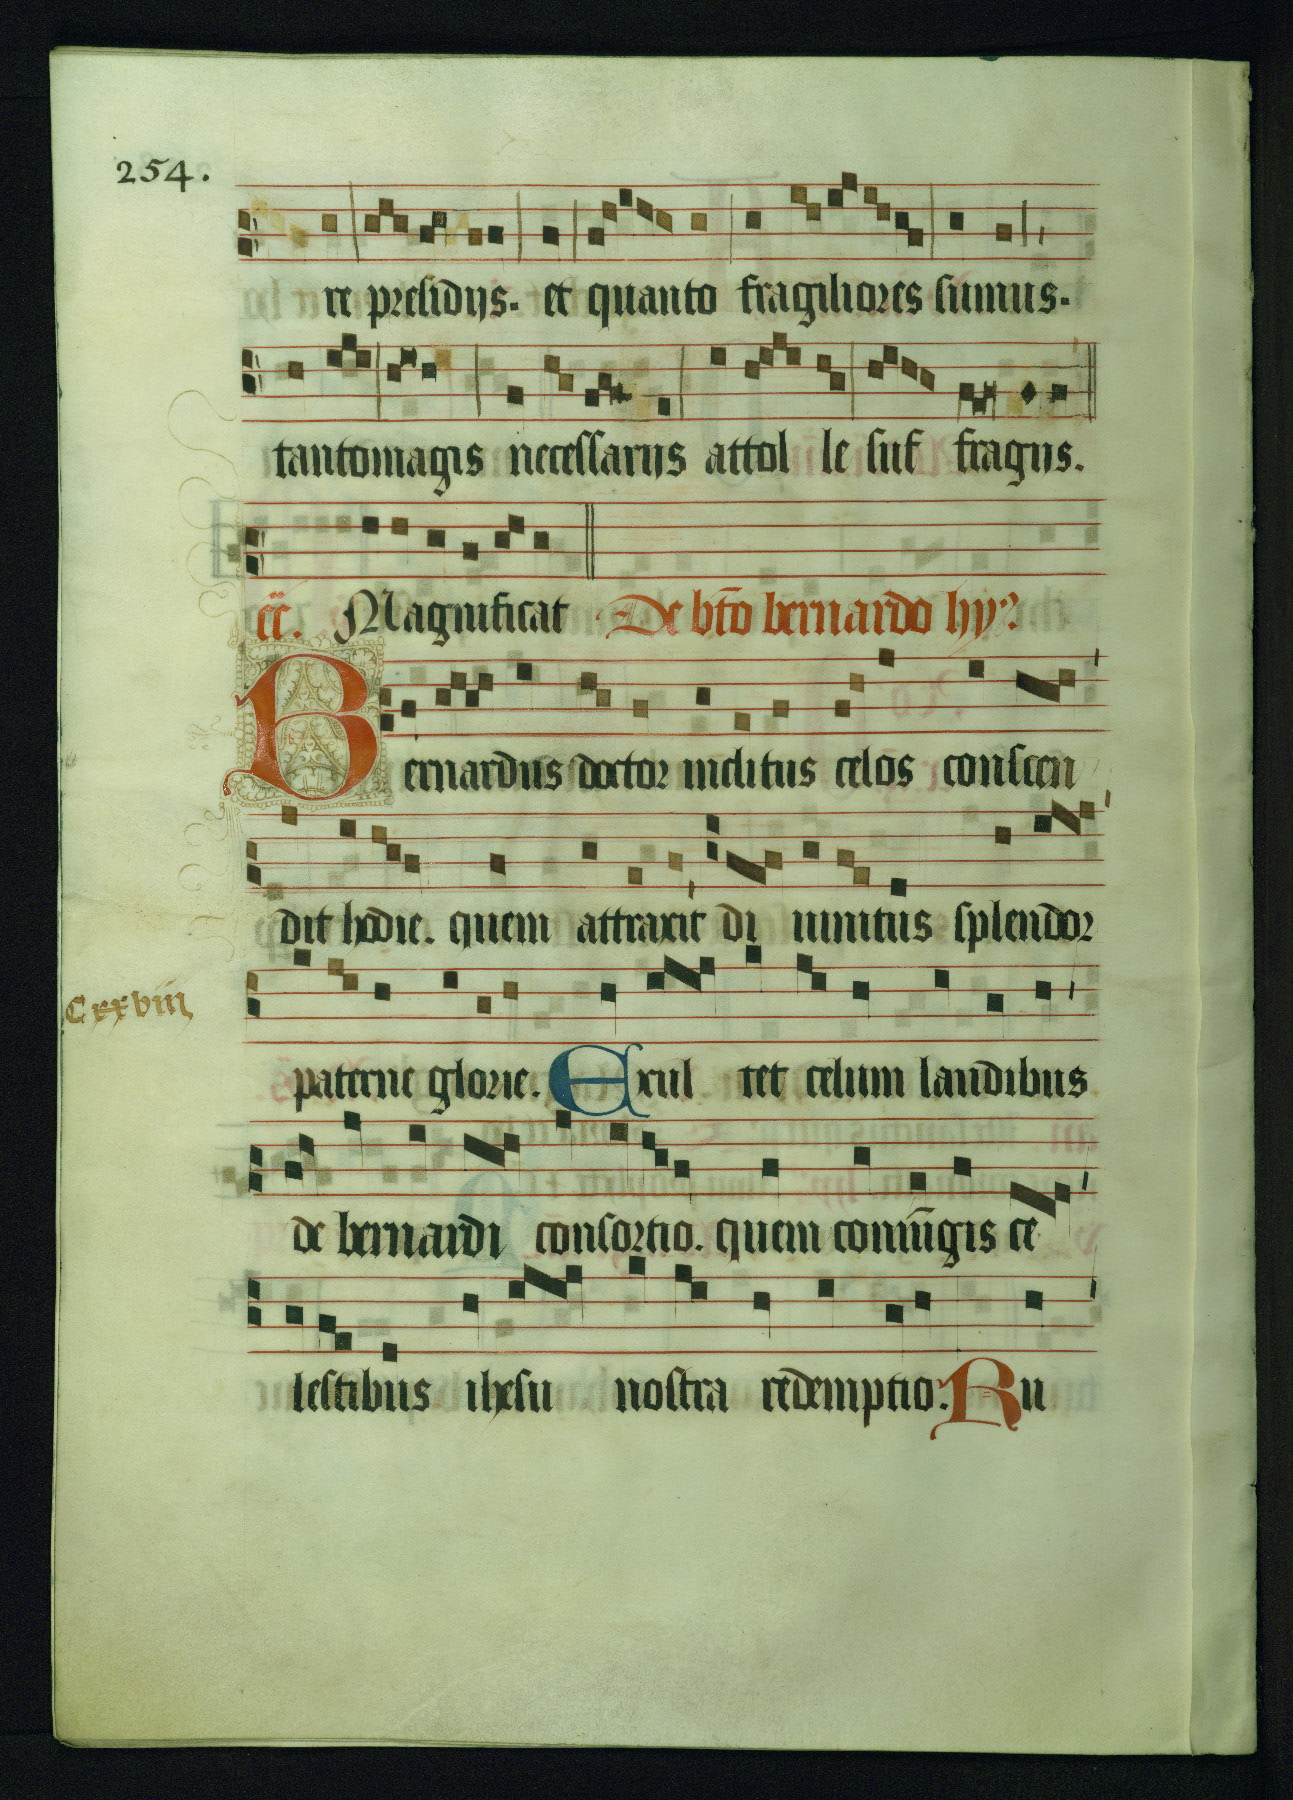 254.
re presidijs. et quanto fragiliores sumus.
tantomagis necessarijs attol le suf fragijs.
Magnificat De bt̄o bernardo hy?
Bernardus doctor inclitus celos conscen
dit hodie. quem attraxit di uinitus splendor
Cxxviii
paterne glorie. Exul tet celum laudibus
de bernardi consortio. quem coniūgis ce
lestibus ihesu nostra redemptio. Ru